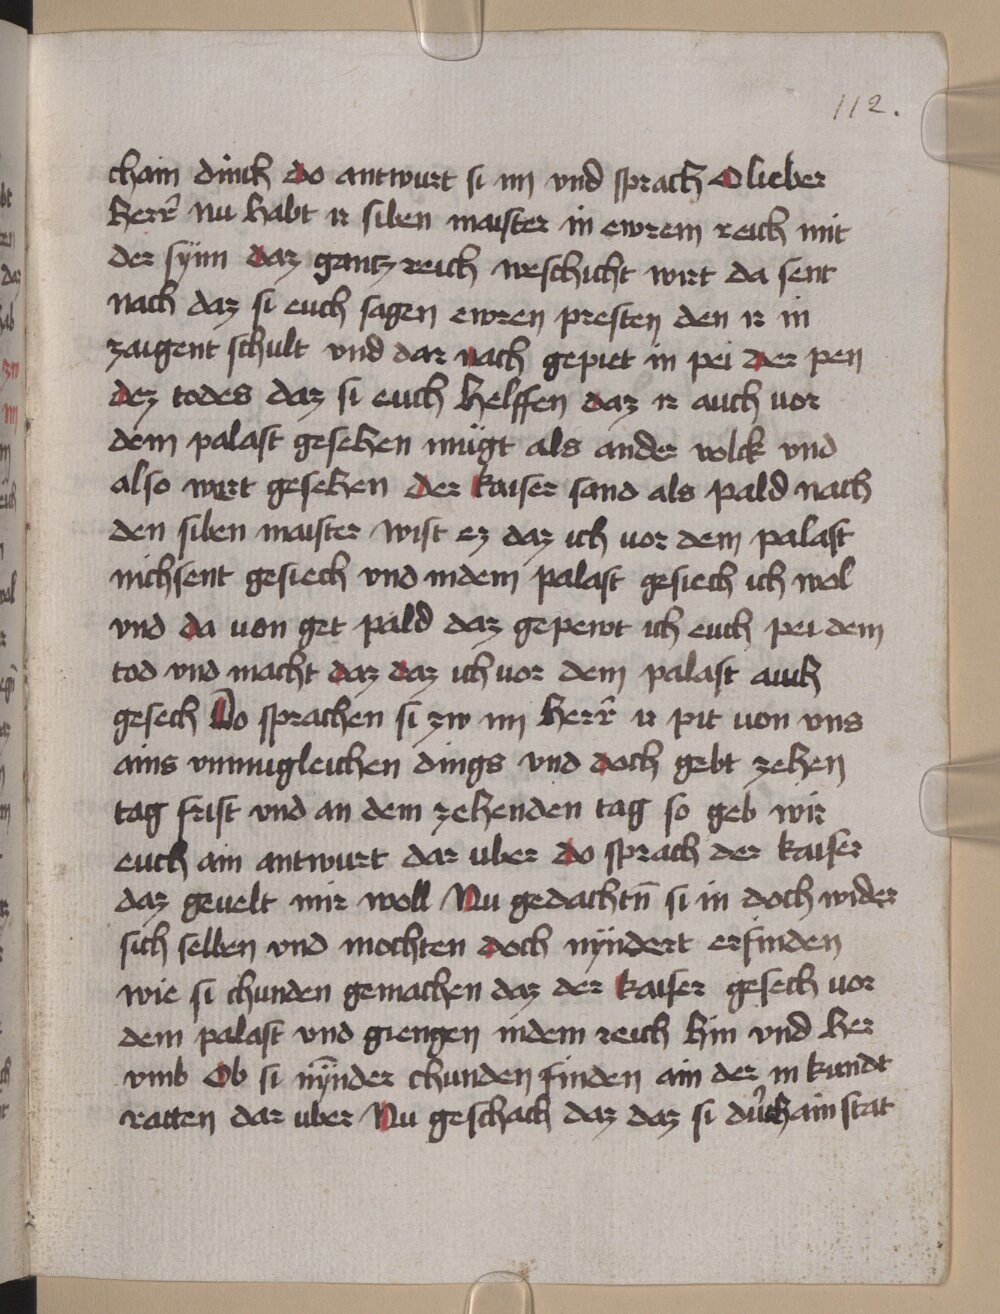 112.
chain dinck do antwurt si im vnd sprach O lieber
herr̄ nu habt ir siben maister in ewrem reich mit
der synn daz gantz reich areschicht wirt da sent
nach daz si euch sagen ewren presten den ir in
zaigent schult vnd dar nach gepiet in pei der pen
dez todes daz si euch helffen daz ir auch uor
dem palast gesehen mügt als ander volck vnd
also wart gesehen der kaiser sand als pald nach
den siben maister wist ez daz ich uor dem palast
nichsent gesiech vnd indem palast gesiech ich wol
vnd da uon get pald daz gepewt ich euch pei dem
tod vnd macht daz daz ich vor dem palast auch
gesech Do sprachen si zw im herr̄ ir pit uon vns
ains vnmugleichen dings vnd doch gebt zehen
tag frist vnd an dem zehenden tag so geb wir
euch ain antwurt dar uber do sprach der kaiser
daz geuelt mir woll Nu gedachtn̄ si in doch wider
sich selben vnd mochten doch nyndert erfinden
wie si chunden gemachen daz der kaiser gesech uor
dem palast vnd giengen indem reich hin vnd her
vmb Ob si nynder chunden finden ain der in kundt
ratten dar uber Nu geschach daz daz si durch ain stat